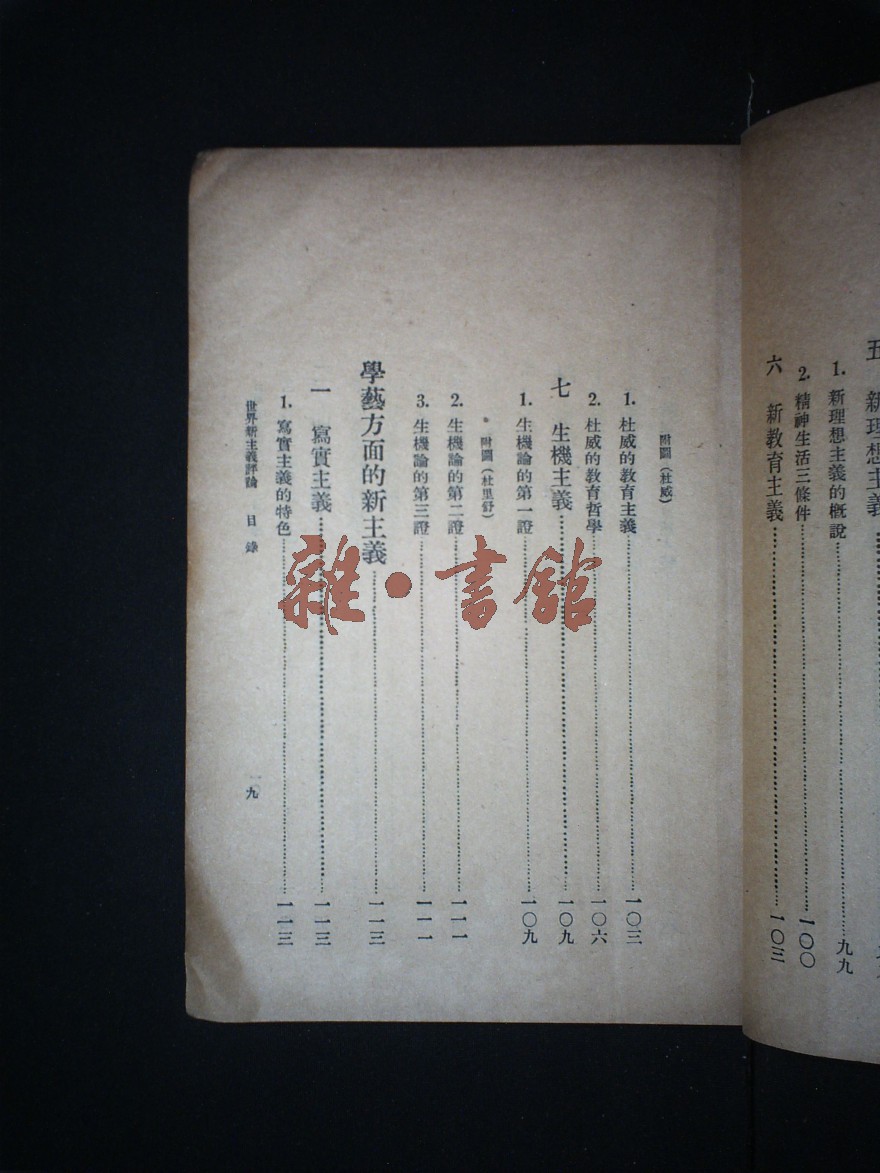 五 新理想主義
1. 新理想主義的概說……九九
2. 精神生活三條件……一〇〇
六 新教育主義……一〇三
附圖(杜威)
1. 杜威的教育主義……一〇三
2. 杜威的教育哲學……一〇六
七 生機主義……一〇九
1. 生機論的第一證……一〇九
附圖(杜里舒)
2. 生機論的第二證……一一一
3. 生機論的第三證……一一一
學藝方面的新主義……一一三
一 寫實主義……一一三
1. 寫實主義的特色……一一三
世界新主義評論 目錄
一九
雜·書館